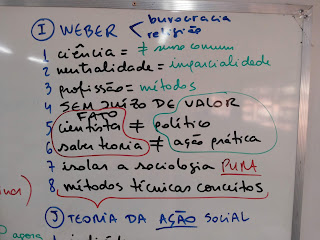 I WEBER < burocracia
religião
1 ciência = ≠ senso comum
2 neutralidade = imparcialidade
3 profissão = métodos
4 SEM JUÍZO DE VALOR
FATO
5 cientista ≠ político
6 saber teoria ≠ ação prática
7 isolar a sociologia PURA
8 métodos técnicas conceitos
J TEORIA DA AÇÃO SOCIAL
agora